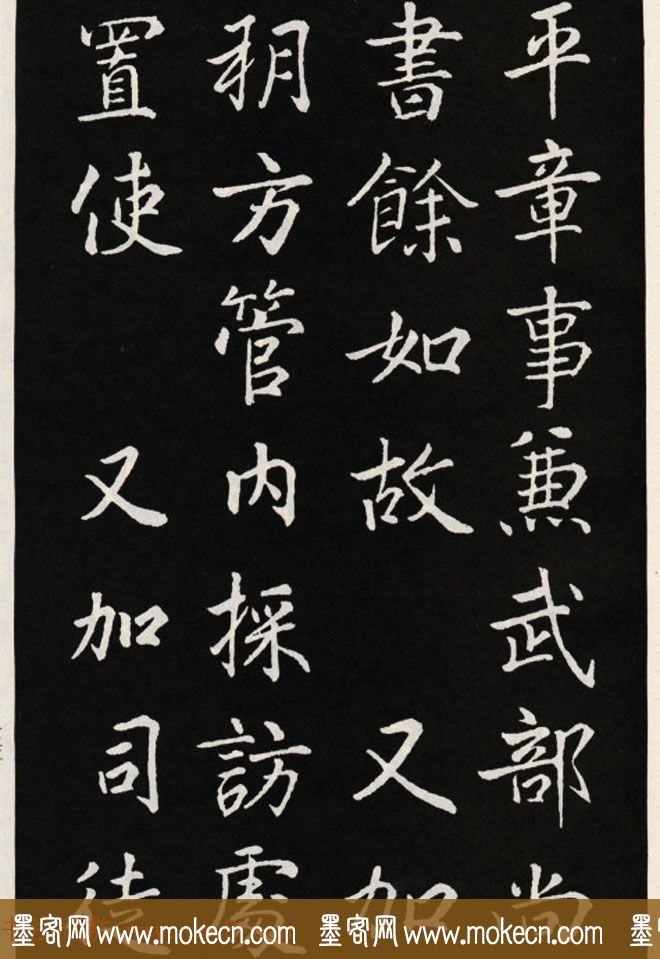 平章事兼武部尚
書餘如故 又加
朔方管內採訪處
置使 又加司徒
墨客网 www.mokecn.com 墨客网 www.mokecn.com